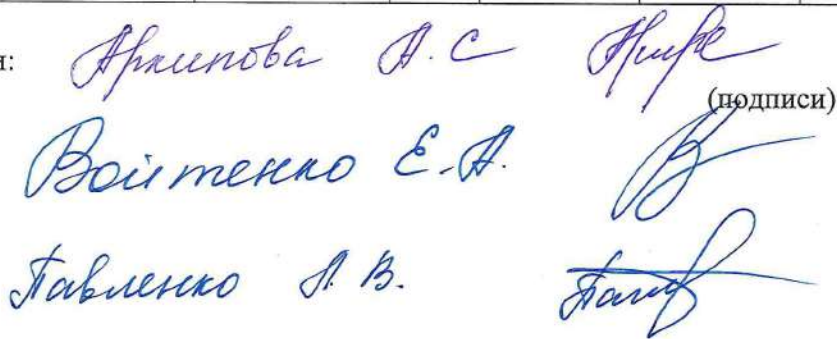 и: Архипова А. С
(подписи)
Войтенко Е. А.
Павленко А. В.